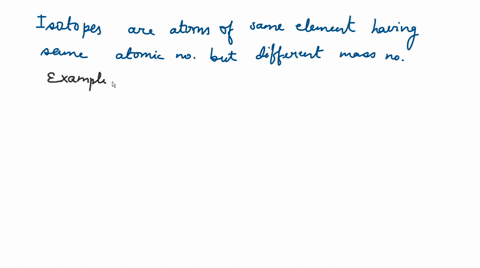 Isotopes are atoms of same element having
same atomic no. but different mass no.
Example